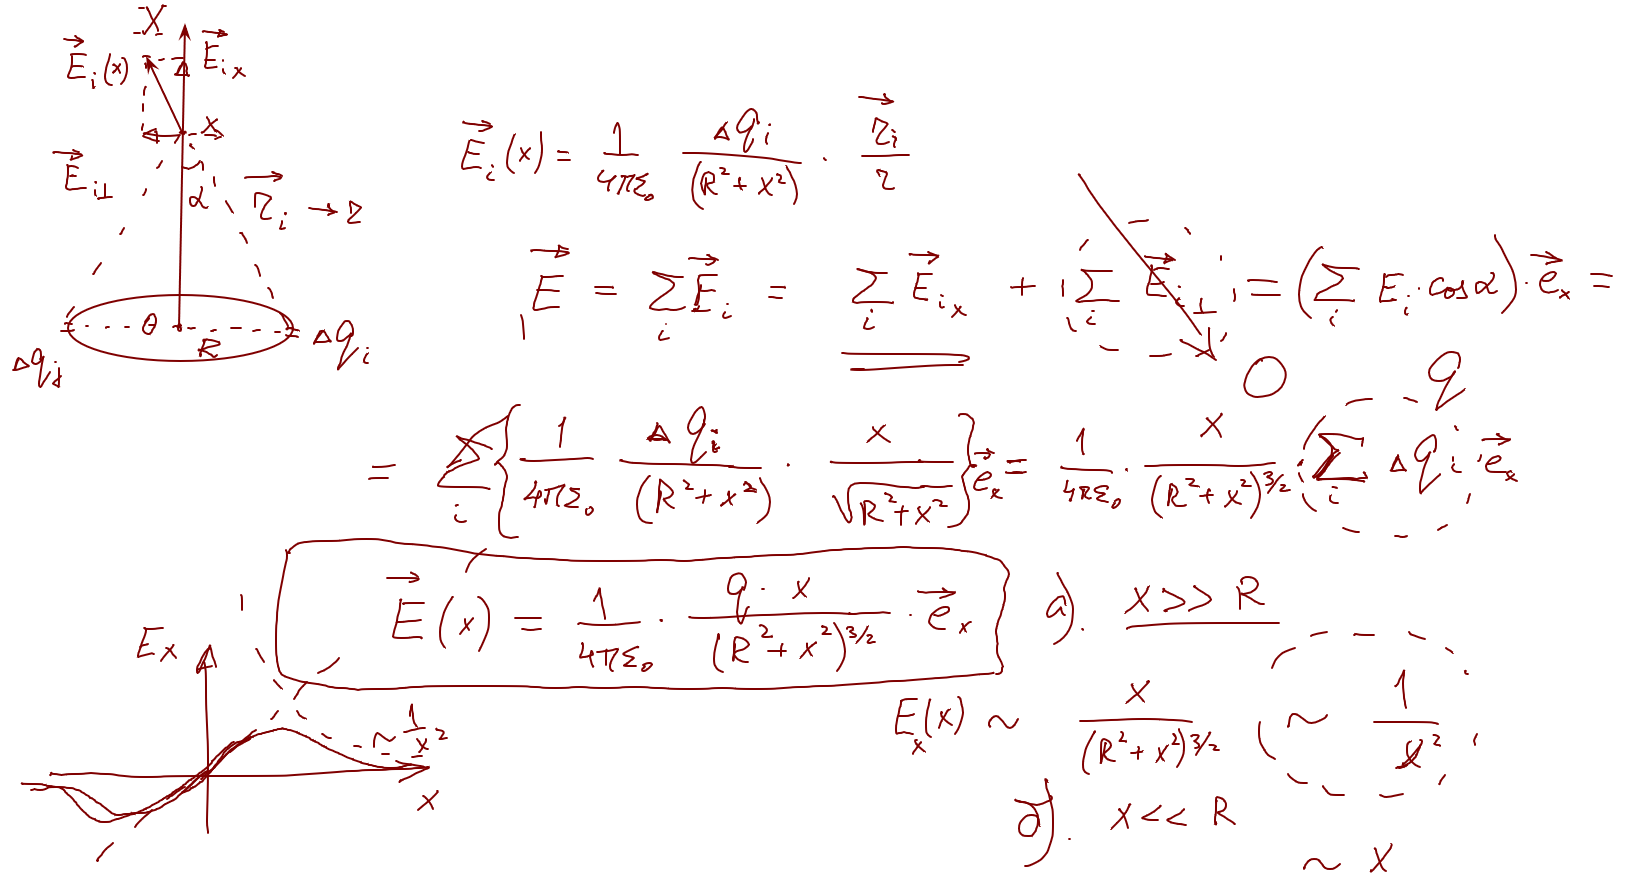 X
E⃗ᵢ(x) E⃗ᵢₓ
x
E⃗ᵢ⊥
α r⃗ᵢ → r
0 R
Δqⱼ Δqᵢ
E⃗ᵢ(x) = 1/(4πε₀) Δqᵢ/(R² + x²) · r⃗ᵢ/r
E⃗ = ∑ᵢ E⃗ᵢ = ∑ᵢ E⃗ᵢₓ + ∑ᵢ E⃗ᵢ⊥ = (∑ᵢ Eᵢ · cos α) · e⃗ₓ =
0 q
= ∑ᵢ { 1/(4πε₀) Δqᵢ/(R² + x²) · x/√(R² + x²) } e⃗ₓ = 1/(4πε₀) · x/(R² + x²)^(3/2) (∑ᵢ Δqᵢ) e⃗ₓ
E⃗(x) = 1/(4πε₀) · q · x/(R² + x²)^(3/2) · e⃗ₓ
а). x >> R
Eₓ(x) ~ x/(R² + x²)^(3/2) ~ 1/x²
б). x << R
~ x
Eₓ
~ 1/x²
x